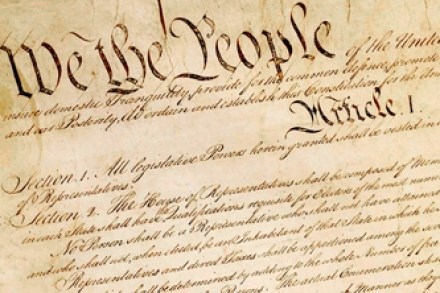 We the People of the United
insure domestic Tranquility, provide for the common defence, promote
and our Posterity, do ordain and establish this Constitution for the Uni
Article. I.
Section. 1. All legislative Powers herein granted shall be vested in
of Representatives.
Section. 2. The House of Representatives shall be composed of Mem
in each State shall have the Qualifications requisite for Electors of the most nume
No Person shall be a Representative who shall not have attained
and who shall not, when elected, be an Inhabitant of that State in which he
Representatives and direct Taxes shall be apportioned among the seve
be determined by adding to the whole Number of free
The actual Enumeration shall
Manner as they